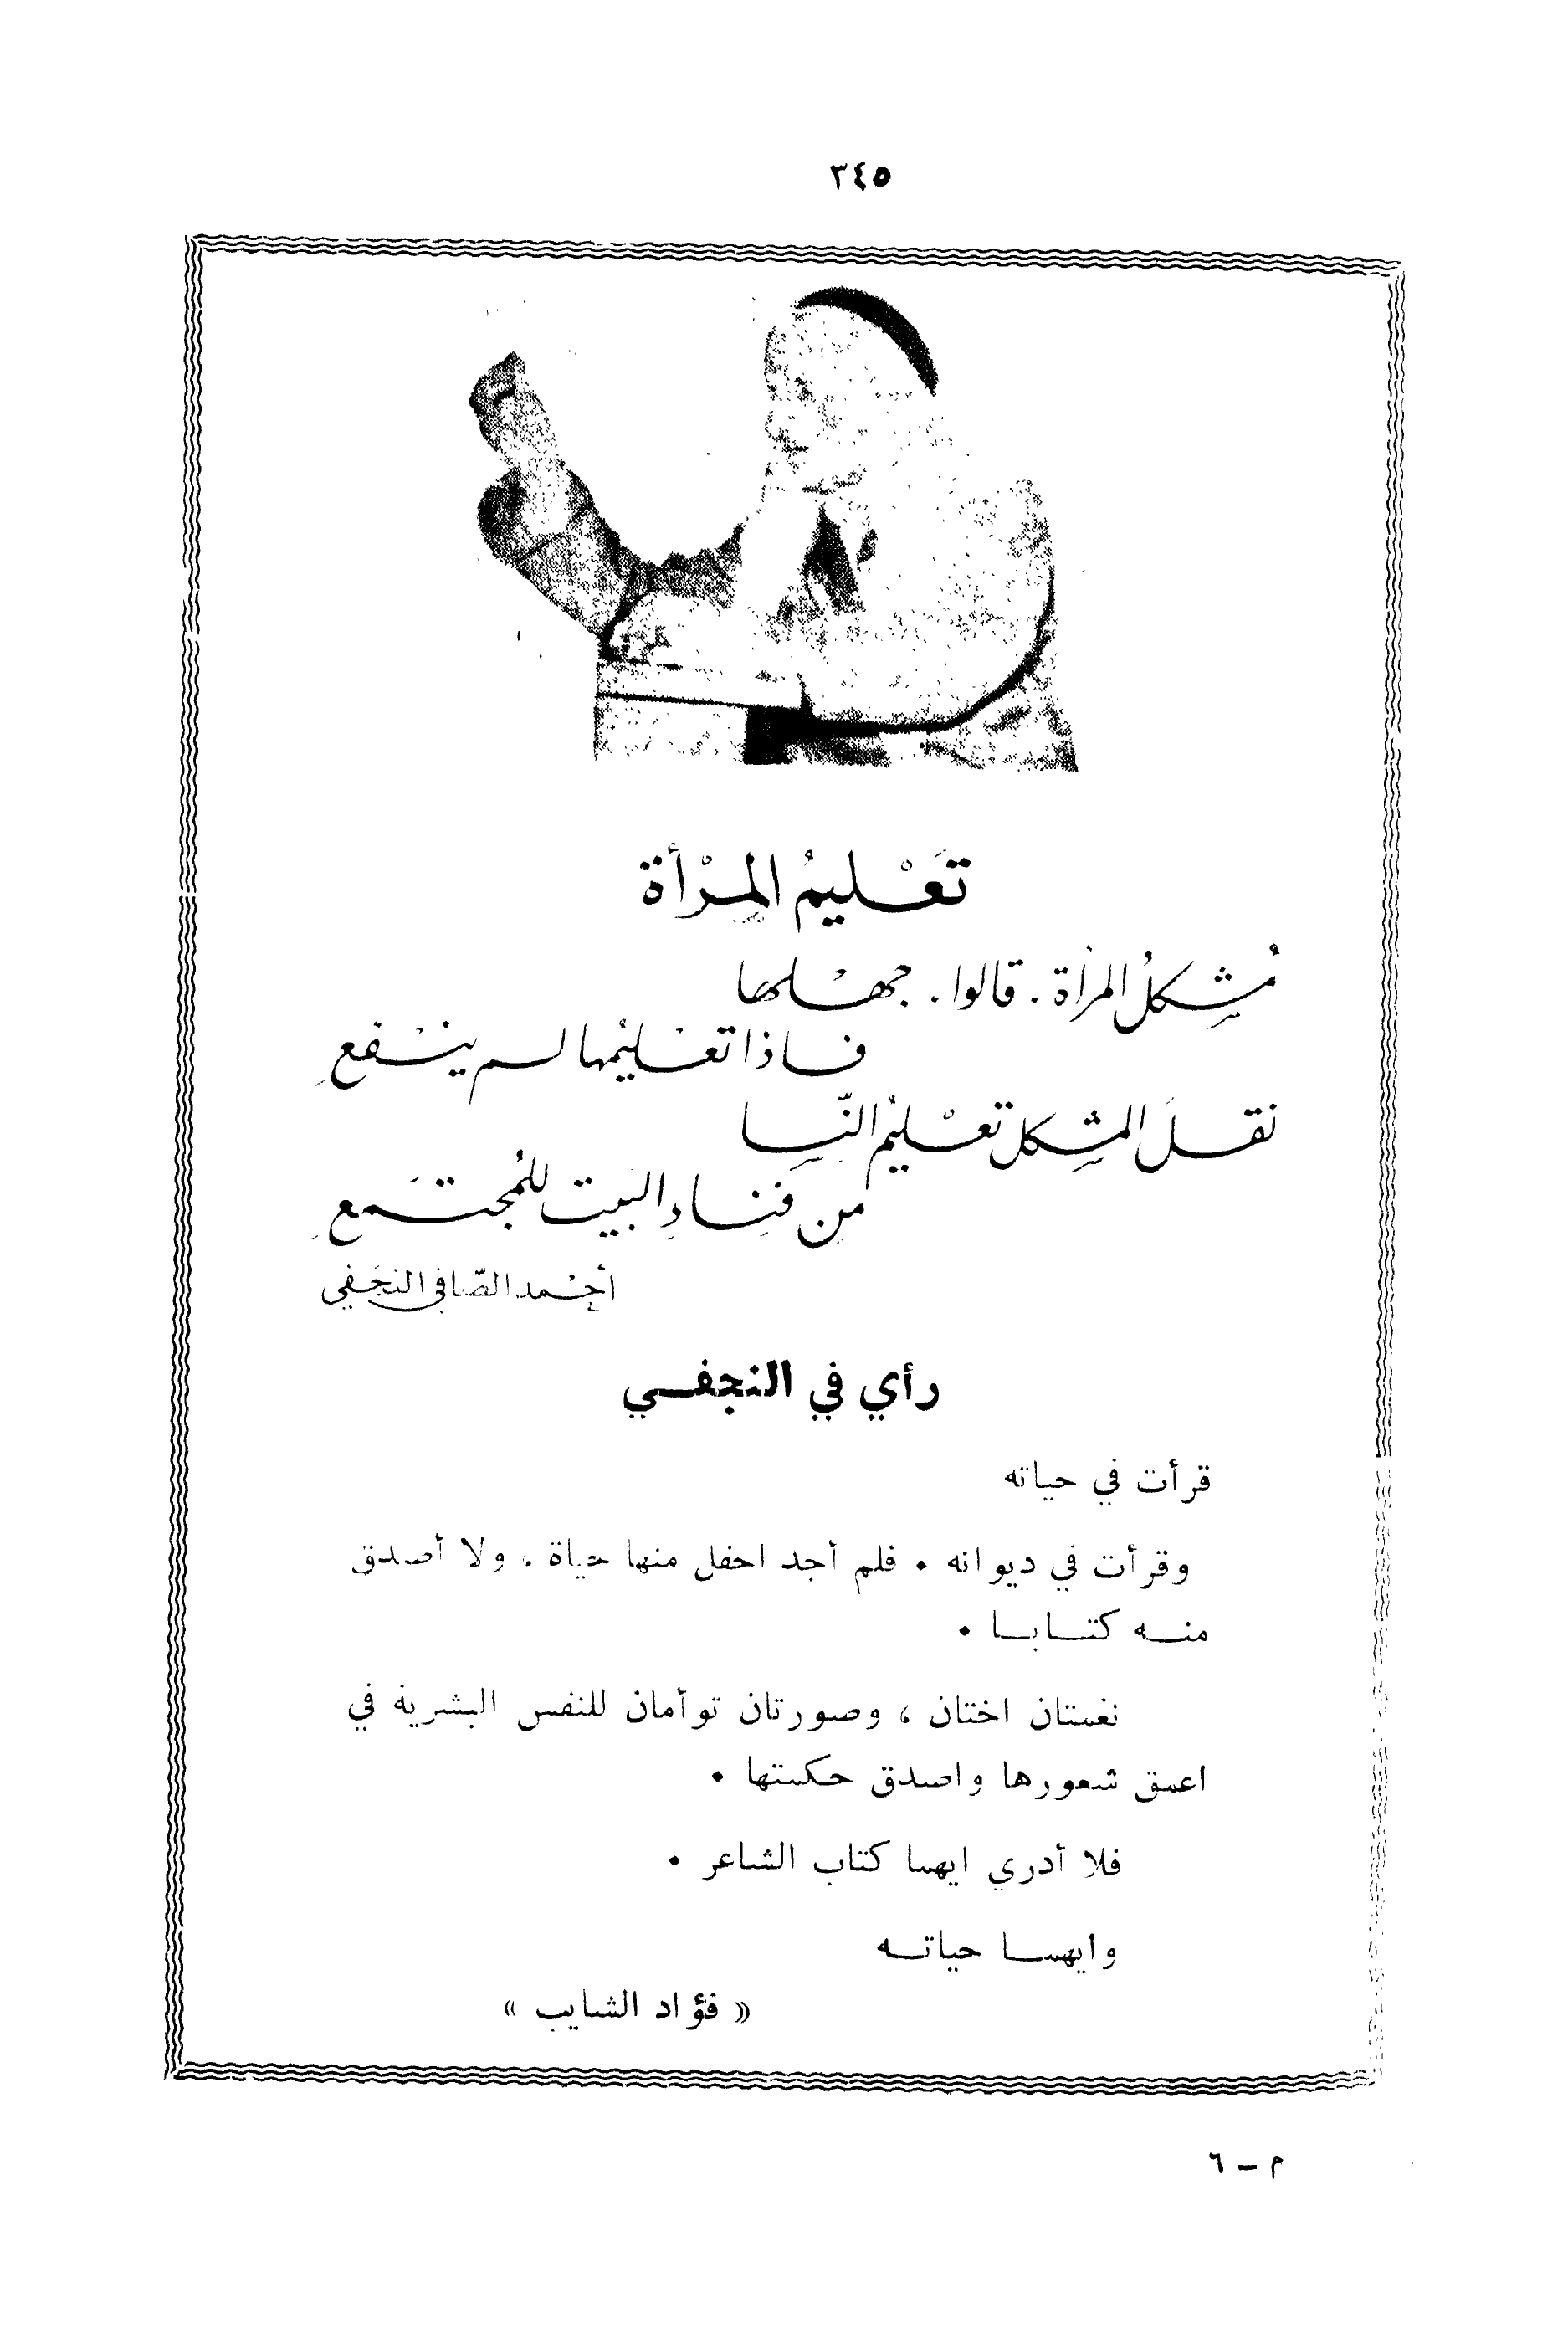 ٣٤٥
تَعْليمُ المرْأة
مُشكلُ المرأة . قالوا . جهْلها
فاذا تعْليمُها لم ينْفعِ
نقلَ المشكل تعْليمُ النّسا
مِن فِناءِ البَيت للمُجتَمعِ
أحْمد الصّافي النجَفي
رأي في النجفي
قرأت في حياته
وقرأت في ديوانه . فلم أجد احفل منها حياة ، ولا أصدق
منه كتابا .
نغمتان اختان ، وصورتان توأمان للنفس البشرية في
اعمق شعورها واصدق حكمتها .
فلا أدري ايهما كتاب الشاعر .
وايهما حياته
« فؤاد الشايب »
م – ٦